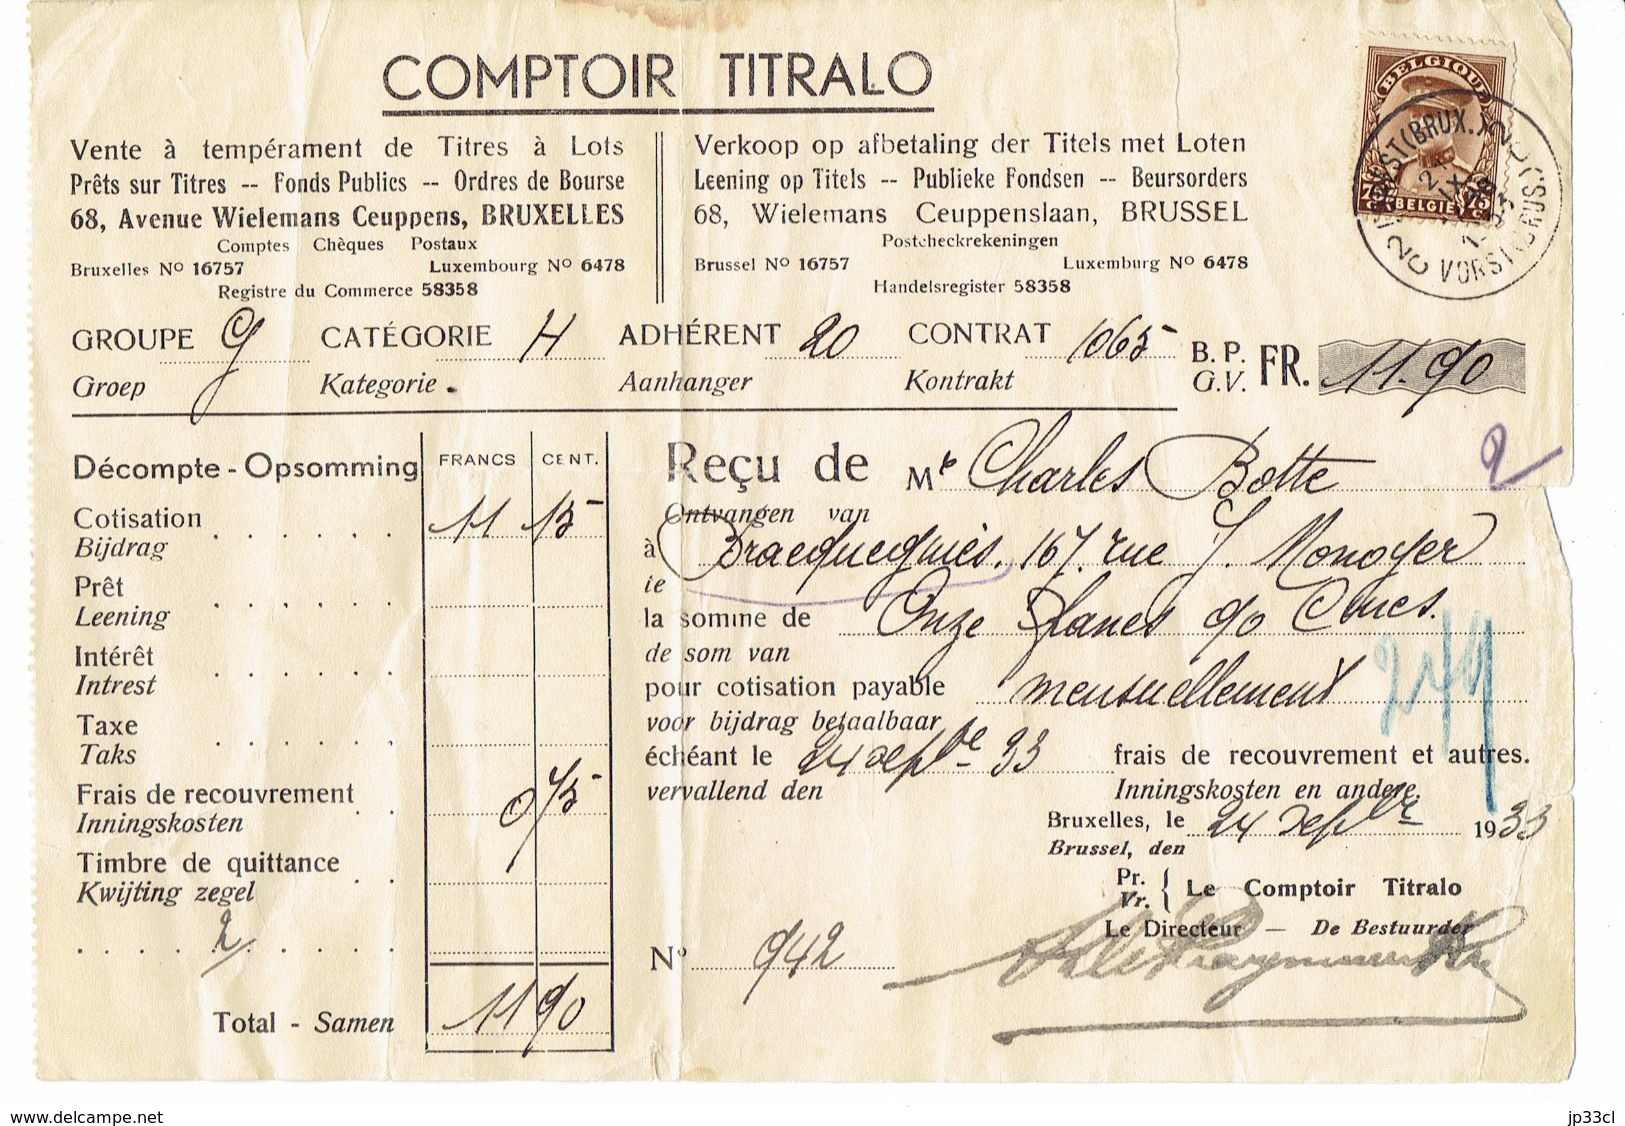 COMPTOIR TITRALO
Vente à tempérament de Titres à Lots
Prêts sur Titres -- Fonds Publics -- Ordres de Bourse
68, Avenue Wielemans Ceuppens, BRUXELLES
Comptes Chèques Postaux
Bruxelles No 16757 Luxembourg No 6478
Registre du Commerce 58358
Verkoop op afbetaling der Titels met Loten
Leening op Titels -- Publieke Fondsen -- Beursorders
68, Wielemans Ceuppenslaan, BRUSSEL
Postcheckrekeningen
Brussel No 16757 Luxemburg No 6478
Handelsregister 58358
BELGIQUE
75 BELGIE 75
VORST (BRUSS.)
GROUPE G CATÉGORIE H ADHÉRENT 20 CONTRAT 1065 B. P. FR. 11.90
Groep Kategorie Aanhanger Kontrakt G.V.
Décompte - Opsomming FRANCS CENT.
Cotisation 11 15
Bijdrag
Prêt
Leening
Intérêt
Intrest
Taxe
Taks
Frais de recouvrement 0 75
Inningskosten
Timbre de quittance
Kwijting zegel
2
Total - Samen 11 90
Reçu de Mr Charles Botte 2
Ontvangen van
à Bracquegnies, 167, rue J. Monoyer
ie
la somme de Onze francs 90 Cmes.
de som van
pour cotisation payable mensuellement
voor bijdrag betaalbaar
échéant le 24 sepbre 33 frais de recouvrement et autres.
vervallend den Inningskosten en andere.
24/9
Bruxelles, le 24 sepbre 1933
Brussel, den
Pr. Vr. { Le Comptoir Titralo
Le Directeur — De Bestuurder
No 942
www.delcampe.net jp33cl